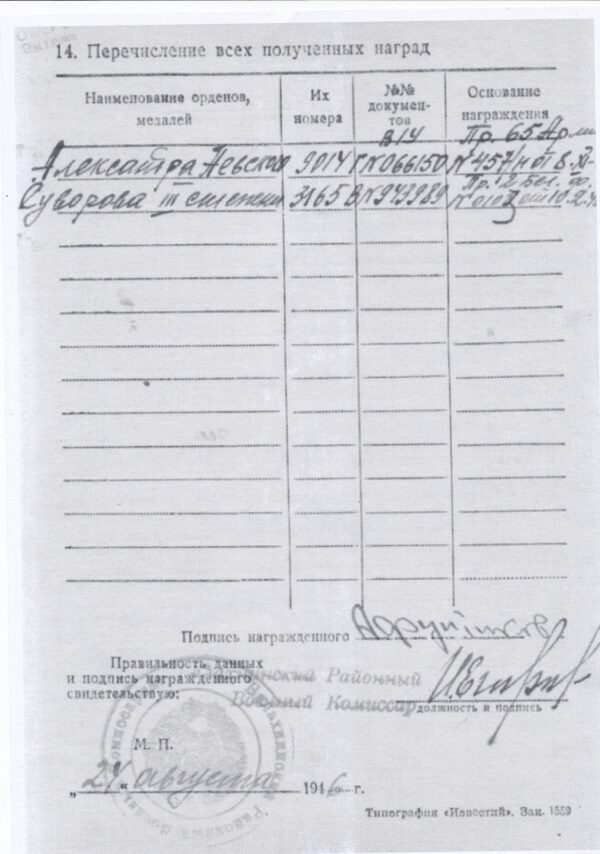 14. Перечисление всех полученных наград
Наименование орденов, медалей
Их номера
№№ документов
Основание награждения
ВУ Пр. 65 Арми
Александра Невского 9014 Г№066150 №457/н от 8.XI
Пр. 2 Бел. фр.
Суворова III степени 3165 В№943989
Подпись награжденного
Правильность данных
и подпись награжденного
свидетельствую:
Районный
Военный Комиссар
должность и подпись
М. П.
„24“ августа 1946 г.
Типография «Известий». Зак. 1559